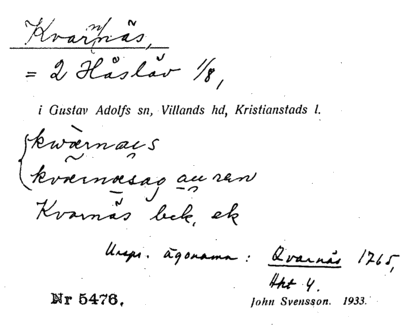 Kvarnnäs,
= 2 Håslöv 1/8,
i Gustav Adolfs sn, Villands hd, Kristianstads l.
kwàrnæs
kværnæsag auren
Kvarnäs bck, ek
Urspr. ägonamn: Qvarnäs 1765,
Hkt 4.
Nr 5476.
John Svensson. 1933.